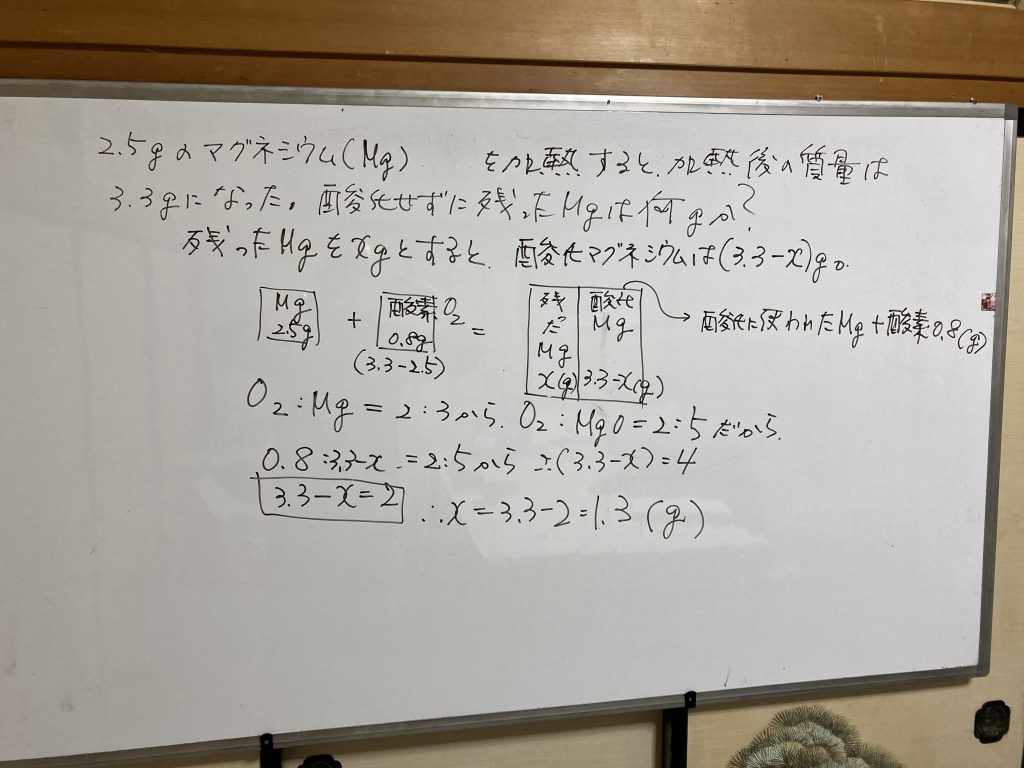 2.5gのマグネシウム(Mg) を加熱すると、加熱後の質量は
3.3gになった。酸化せずに残ったMgは何gか?
残ったMgをxgとすると、酸化マグネシウムは(3.3-x)g。
Mg
2.5g
+
酸素
0.8g
O2
(3.3-2.5)
=
残
だ
Mg
x(g)
酸化
Mg
3.3-x(g)
→ 酸化に使われたMg+酸素0.8(g)
O2:Mg=2:3から、O2:MgO=2:5だから、
0.8:3.3-x=2:5から 2(3.3-x)=4
3.3-x=2 ∴x=3.3-2=1.3(g)